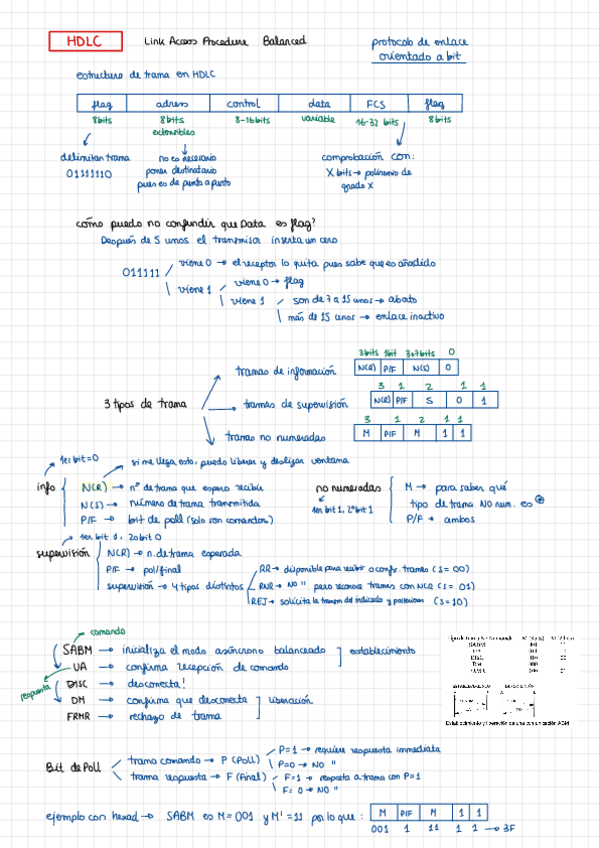 HDLC Link Access Procedure Balanced protocolo de enlace
orientado a bit
estructura de trama en HDLC
flag adress control data FCS flag
8bits 8bits 8-16bits variable 16-32 bits 8bits
extensibles
delimitan trama no es necesario comprobación con:
01111110 poner destinatario X bits → polinomio de
pues es de punto a punto grado X
cómo puedo no confundir que Data es flag?
Después de 5 unos el transmisor inserta un cero
viene 0 → el receptor lo quita pues sabe que es añadido
011111 viene 0 → flag
viene 1
viene 1 son de 7 a 15 unos → abort
más de 15 unos → enlace inactivo
3bits 1bit 3o7bits 0
tramas de información N(R) P/F N(S) 0
3 1 2 1 1
3 tipos de trama tramas de supervisión N(R) P/F S 0 1
3 1 2 1 1
tramas no numeradas M P/F M 1 1
1er bit=0 si me llega esto, puedo liberar y deslizar ventana
info N(R) → nº de trama que espero recibir no numeradas M → para saber qué
N(S) → número de trama transmitida 1er bit 1, 2º bit 1 tipo de trama NO num. es
P/F → bit de poll (solo con comandos) P/F → ambos
1er bit 1, 2o bit 0
supervisión N(R) → n. de trama esperada
P/F → pol/final RR → disponible para recibir o confir. tramas (S=00)
supervisión → 4 tipos distintos RNR → NO " pero reconoce tramas con NCR (S=01)
REJ → solicita la transm del indicado y posteriores (S=10)
comando
SABM → inicializa el modo asíncrono balanceado establecimiento
UA → confirma recepción de comando
respuesta DISC → desconecta!
DM → confirma que desconecta liberación
FRMR → rechazo de trama
P=1 → requiere respuesta inmediata
Bit de Poll trama comando → P (Poll) P=0 → NO "
trama respuesta → F (Final) F=1 → respuesta a trama con P=1
F=0 → NO "
ejemplo con hexad → SABM es M=001 y M'=11 por lo que: M P/F M 1 1
001 1 11 1 1 → 3F